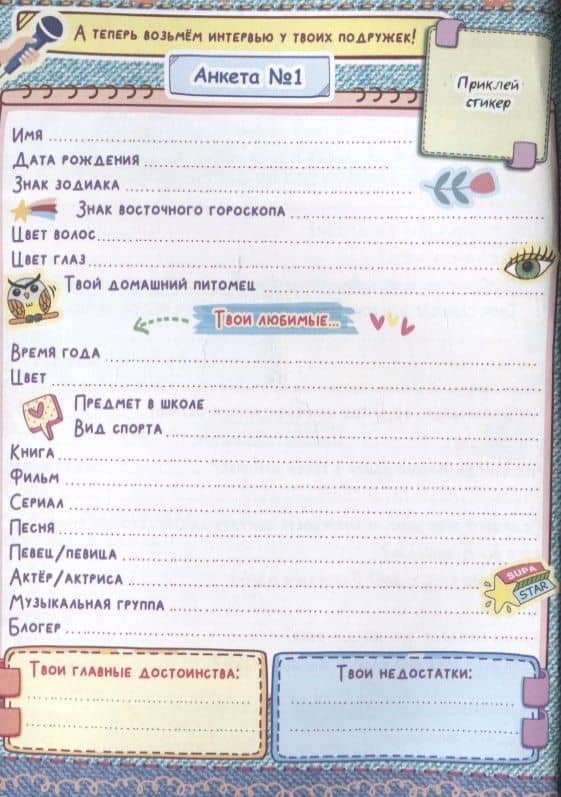 А теперь возьмём интервью у твоих подружек!
Анкета №1
Приклей
стикер
Имя
Дата рождения
Знак зодиака
Знак восточного гороскопа
Цвет волос
Цвет глаз
Твой домашний питомец
Твои любимые...
Время года
Цвет
Предмет в школе
Вид спорта
Книга
Фильм
Сериал
Песня
Певец/певица
Актёр/актриса
Музыкальная группа
Блогер
SUPA
STAR
Твои главные достоинства:
Твои недостатки: